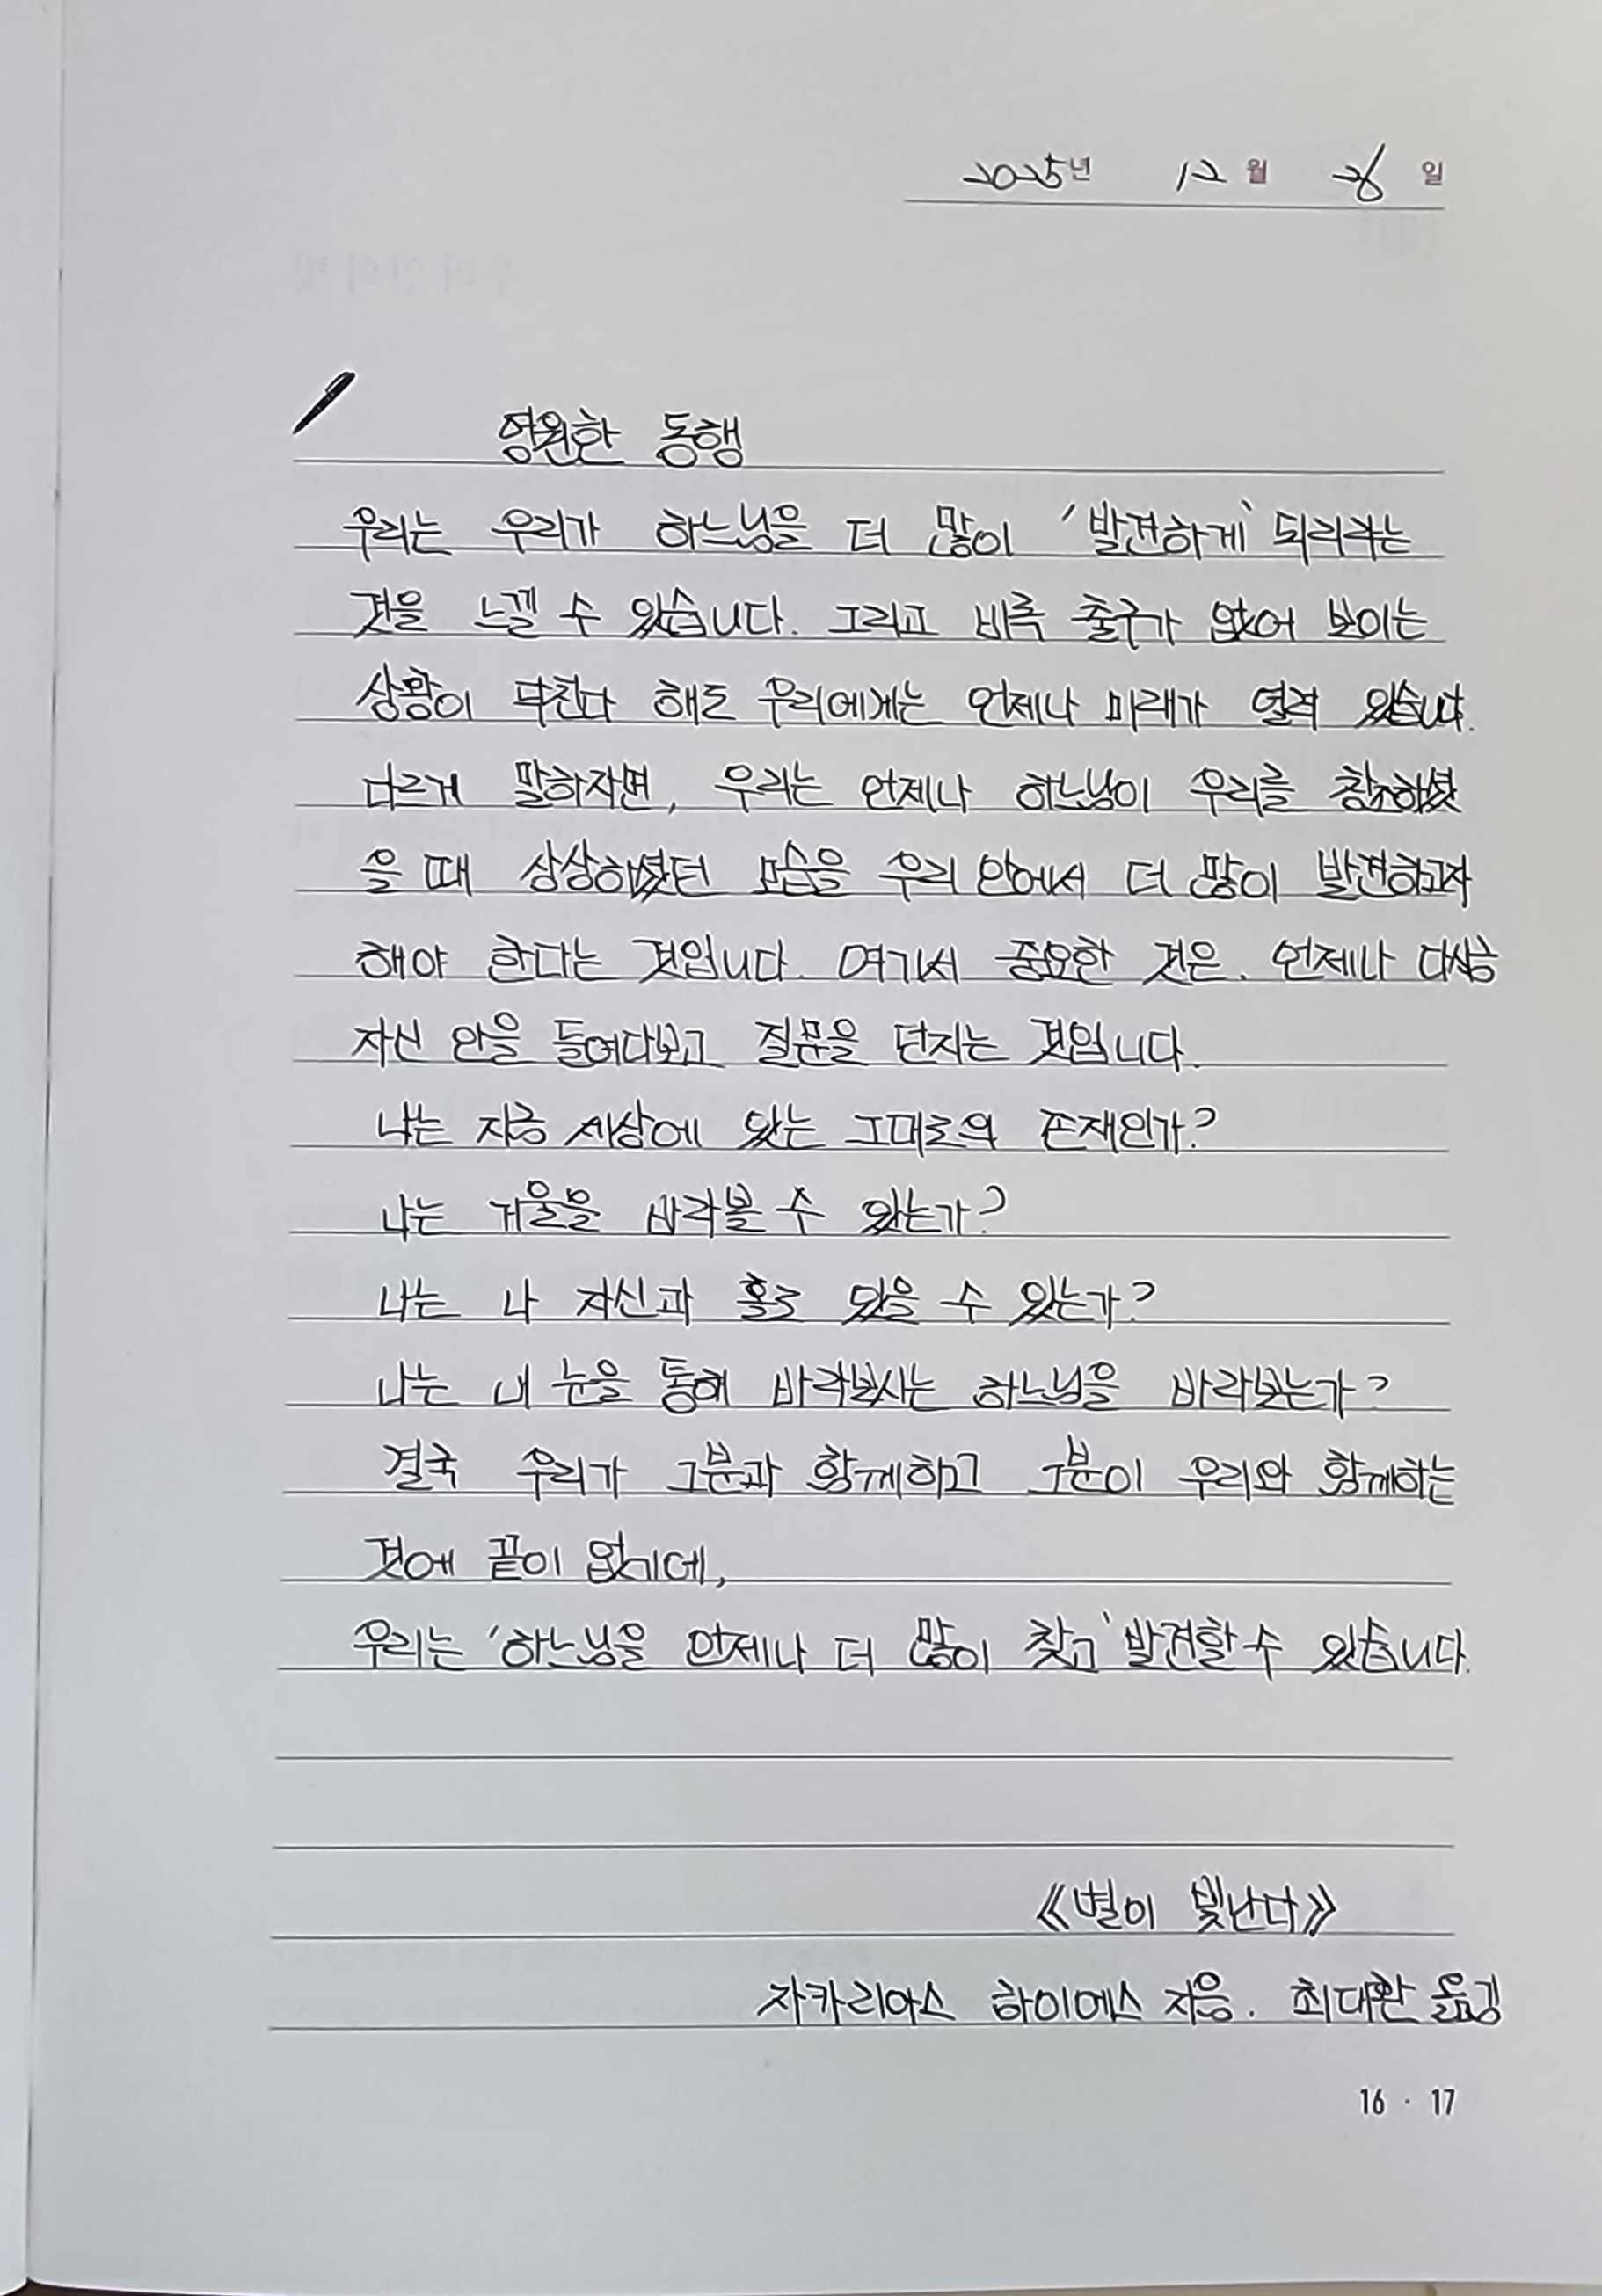 2025년 12월 26일
영원한 동행
우리는 우리가 하느님을 더 많이 '발견하게' 되리라는
것을 느낄 수 있습니다. 그리고 비록 출구가 없어 보이는
상황이 닥친다 해도 우리에게는 언제나 미래가 열려 있습니다.
다르게 말하자면, 우리는 언제나 하느님이 우리를 창조하셨
을 때 상상하셨던 모습을 우리 안에서 더 많이 발견하고자
해야 한다는 것입니다. 여기서 중요한 것은, 언제나 다시금
자신 안을 들여다보고 질문을 던지는 것입니다.
나는 지금 세상에 있는 그대로의 존재인가?
나는 거울을 바라볼 수 있는가?
나는 나 자신과 홀로 있을 수 있는가?
나는 내 눈을 통해 바라보시는 하느님을 바라보는가?
결국 우리가 그분과 함께하고 그분이 우리와 함께하는
것에 끝이 없기에,
우리는 '하느님을 언제나 더 많이 찾고' 발견할 수 있습니다.
《별이 빛난다》
자카리아스 하이에스 지음. 최대환 옮김
16 · 17